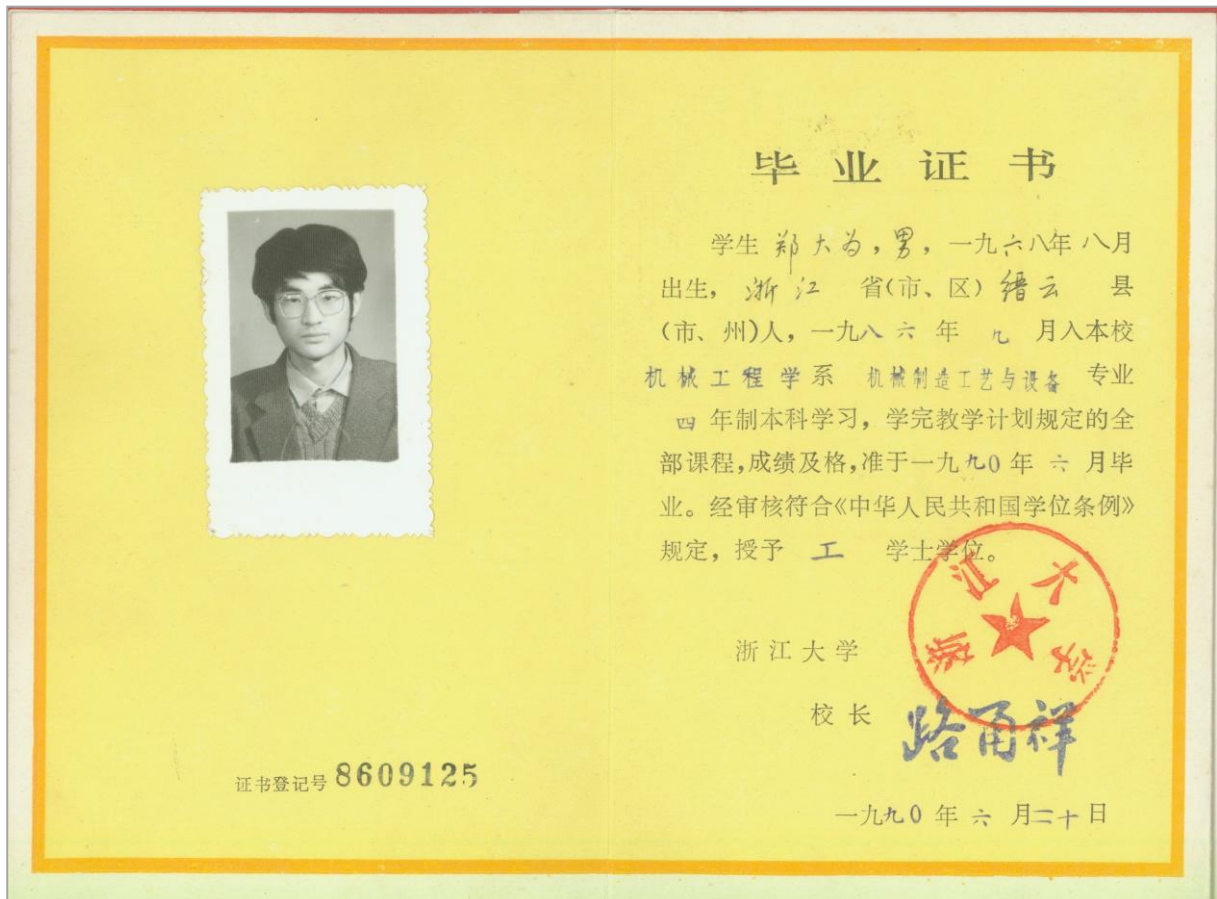 毕业证书
学生 郑大为，男，一九六八年八月
出生，浙江 省(市、区) 缙云 县
(市、州)人，一九八六年 九 月入本校
机械工程学系 机械制造工艺与设备 专业
四 年制本科学习，学完教学计划规定的全
部课程，成绩及格，准于一九九0年 六 月毕
业。经审核符合《中华人民共和国学位条例》
规定，授予 工 学士学位。
浙江大学
浙江大学
校长 路甬祥
一九九0年 六 月二十日
证书登记号 8609125